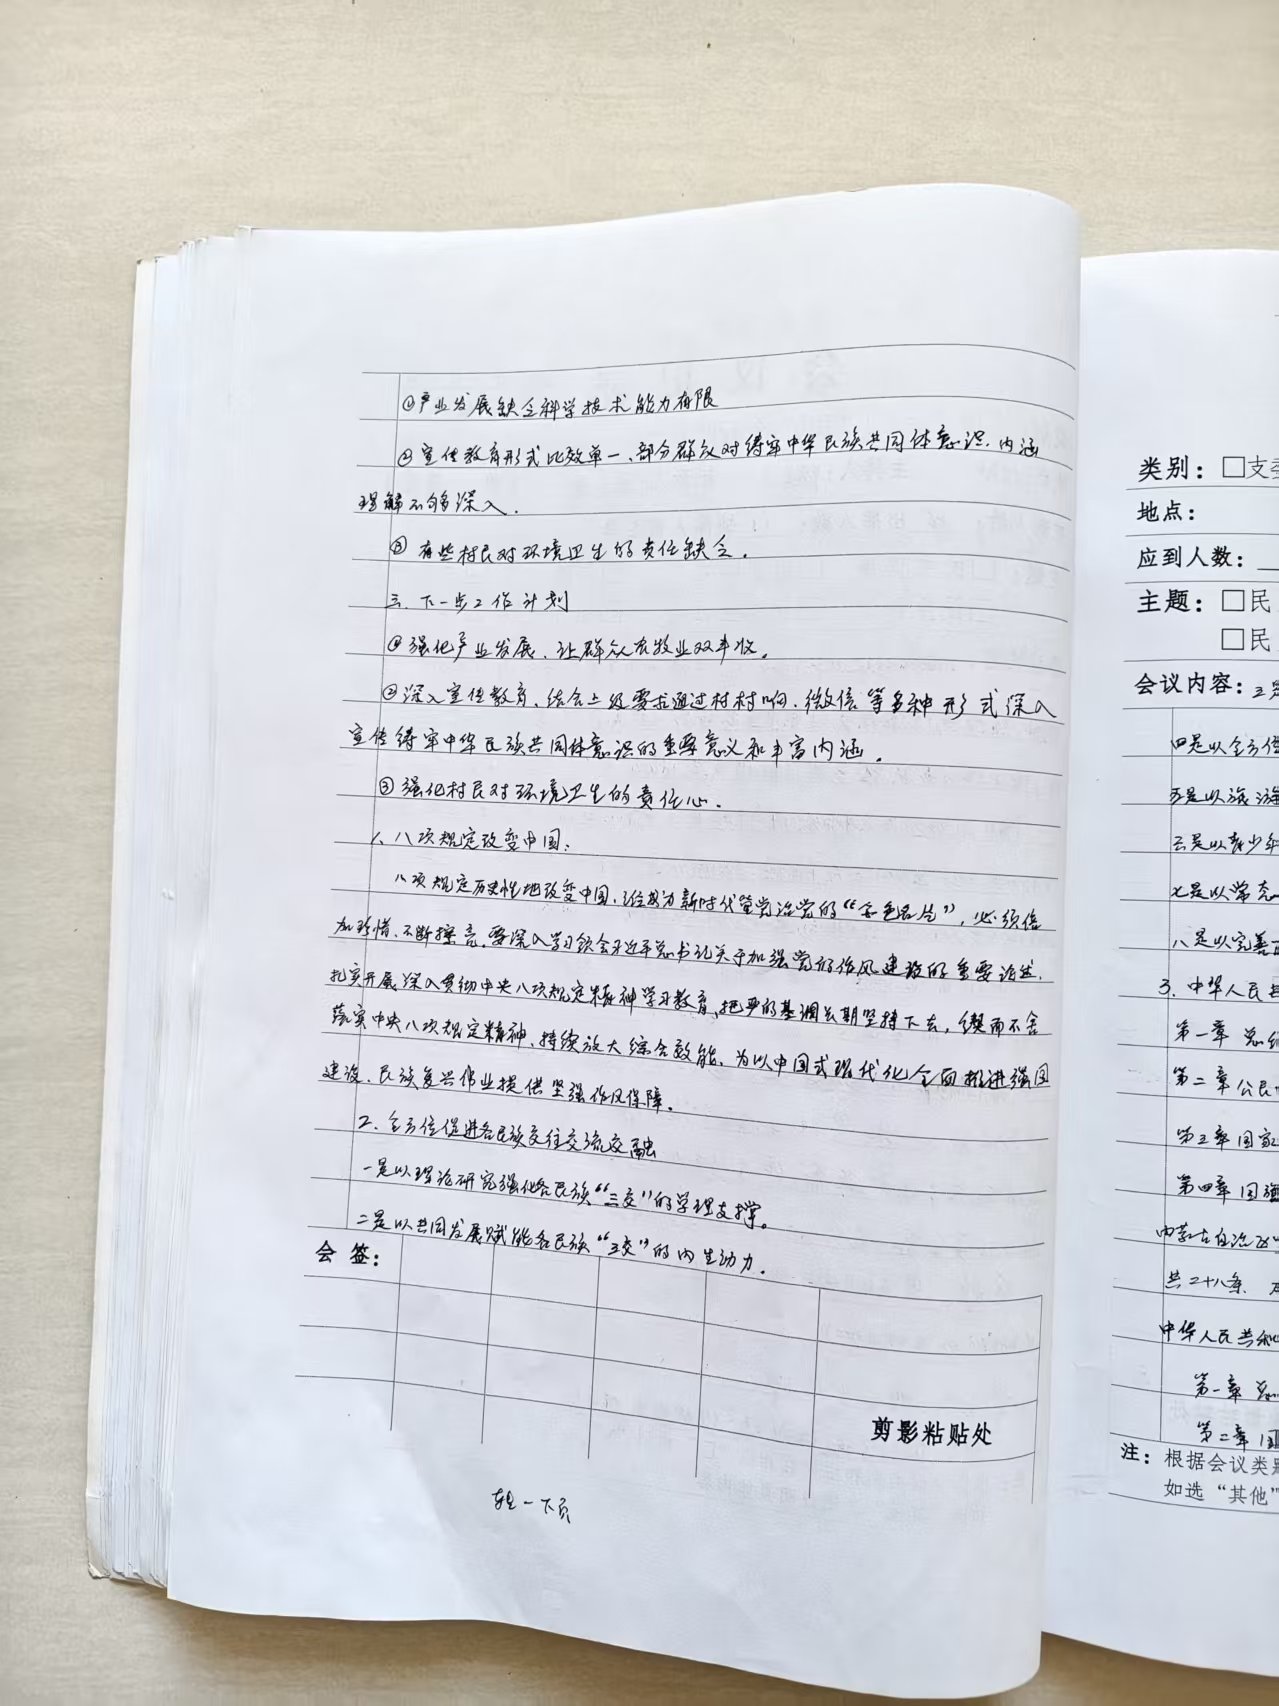 ①产业发展缺乏科学技术能力有限
②宣传教育形式比较单一、部分群众对铸牢中华民族共同体意识、内涵
理解不够深入.
③ 有些村民对环境卫生的责任缺乏.
三、下一步工作计划
①强化产业发展、让群众农牧业双丰收.
②深入宣传教育、结合上级要求通过村村响、微信等多种形式深入
宣传铸牢中华民族共同体意识的重要意义和丰富内涵.
③强化村民对环境卫生的责任心.
1、八项规定改变中国:
八项规定历史性地改变中国,已成为新时代管党治党的“金色名片”,必须倍
加珍惜、不断擦亮.要深入学习领会习近平总书记关于加强党的作风建设的重要论述.
扎实开展深入贯彻中央八项规定精神学习教育,把严的基调长期坚持下去,锲而不舍
落实中央八项规定精神、持续放大综合效能、为以中国式现代化全面推进强国
建设、民族复兴伟业提供坚强作风保障.
2、全方位促进各民族交往交流交融
一是以理论研究强化各民族“三交”的学理支撑。
二是以共同发展赋能各民族“三交”的内生动力.
会 签:
剪影粘贴处
下页
类别:□支委
地点:
应到人数:
主题:□民
□民
会议内容:
四是以全方位
五是以旅游
是以青少年
七是以常态
八是以完善
3、中华人民共
第一章 总纲
第二章 公民
第三章 国家
第四章 国
内蒙古自治区
共二十八条
中华人民共和
第一章 总
第二章
注:根据会议类别
如选“其他”